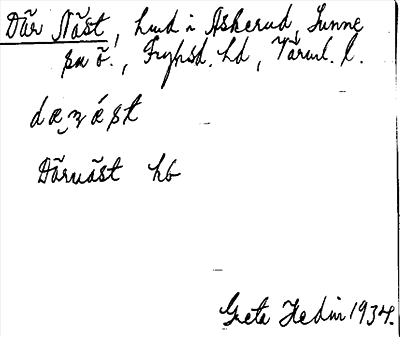 Där Näst, hmd i Askerud, Sunne
sn ö., Fryksd. hd, Värml. l.
dæ̬ʒǽst
Därnäst hb
Greta Hedin 1934.